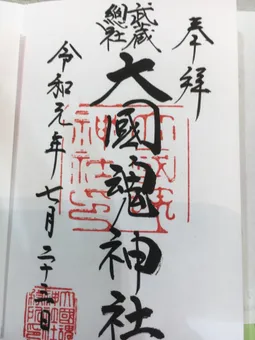 奉拝
武蔵
總社
大國魂神社
令和元年七月二十三日